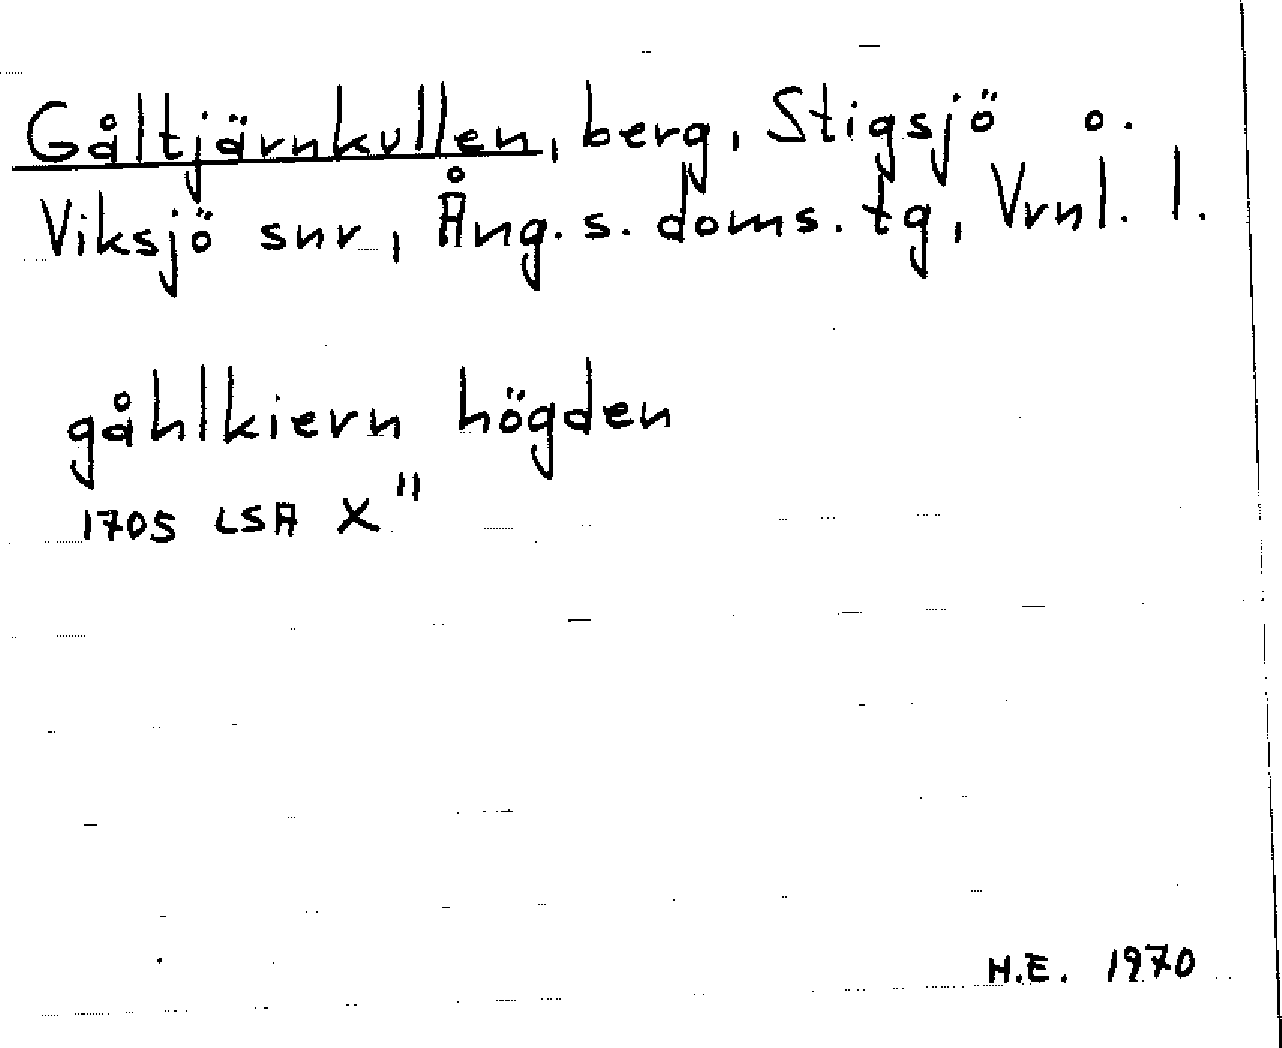 Gåltjärnkullen, berg, Stigsjö o.
Viksjö snr, Ång. s. doms. tg, Vrnl. l.
gåhlkiern högden
1705 LSA X"
H.E. 1970